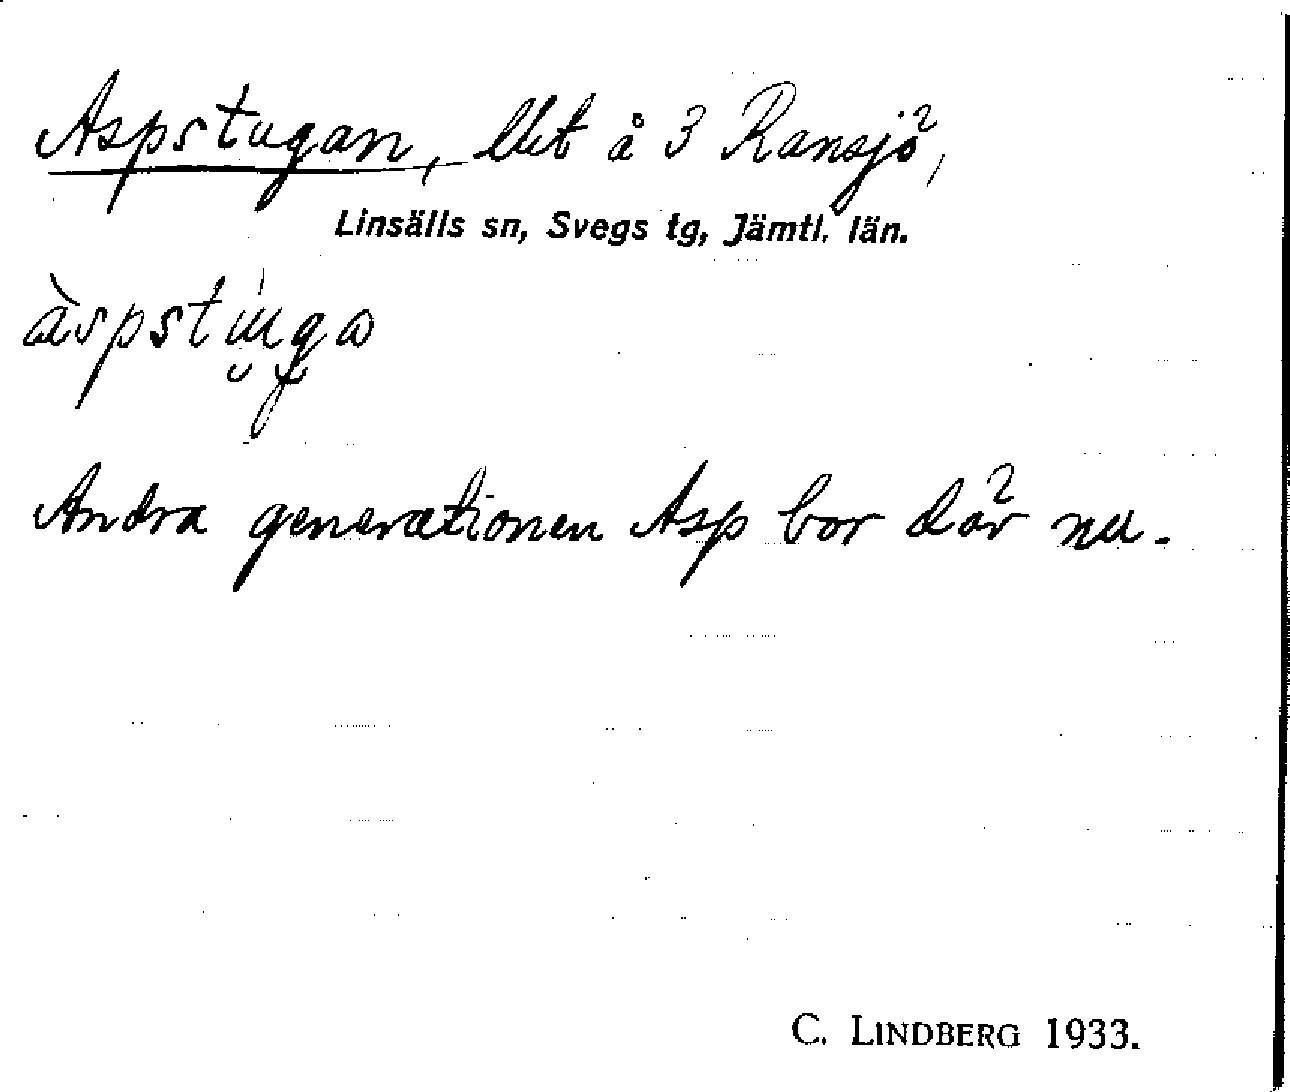 Aspstugan, lht å 3 Ransjö,
Linsälls sn, Svegs tg, Jämtl. län.
àspstuga
Andra generationen Asp bor där nu.
C. LINDBERG 1933.